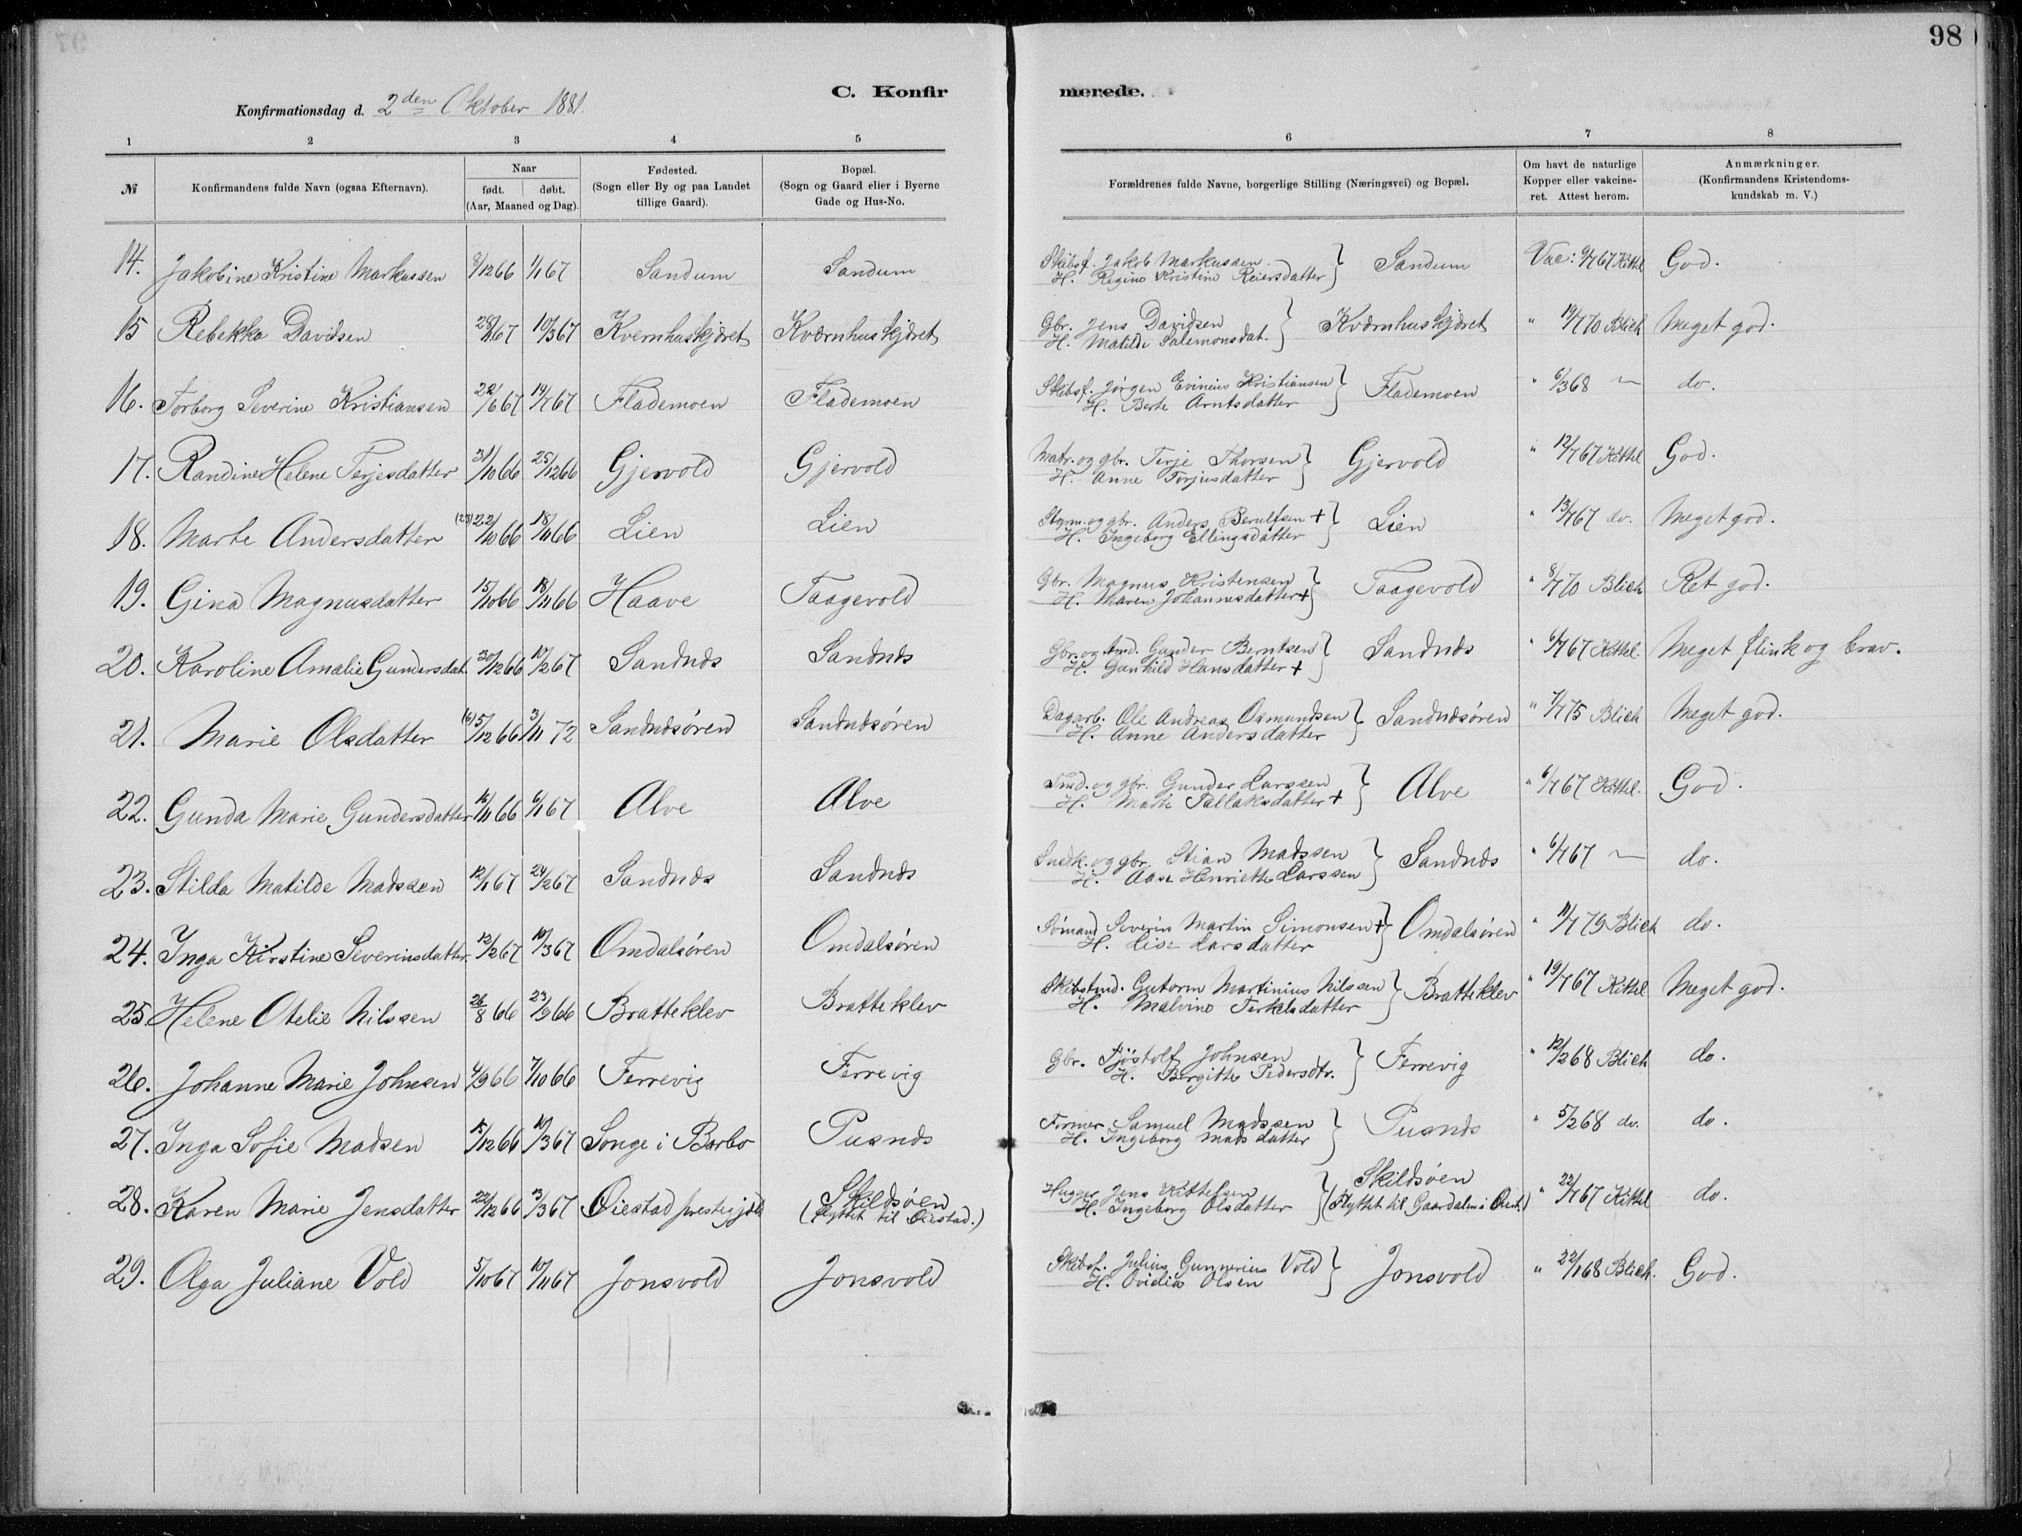 98
C. Konfirmerede.
Konfirmationsdag d. 2den Oktober 1881.
1 2 3 4 5 6 7 8
№ Konfirmandens fulde Navn (ogsaa Efternavn). Naar født. døbt. (Aar, Maaned og Dag). Fødested. (Sogn eller By og paa Landet tillige Gaard). Bopæl. (Sogn og Gaard eller i Byerne Gade og Hus-No. Forældrenes fulde Navne, borgerlige Stilling (Næringsvei) og Bopæl. Om havt de naturlige Kopper eller vakcineret. Attest herom. Anmærkninger. (Konfirmandens Kristendomskundskab m. V.)
14. Jakobine Kristine Markussen 8/12 66 1/1 67 Sandum Sandum Skibsf. Jakob Markussen. H. Regine Kristine Reiersdatter } Sandum Vac: 6/7 67 Kittel God.
15 Rebekka Davidsen 28/1 67 10/3 67 Kvernhuskjæret Kværnhuskjæret Gbr. Jens Davidsen H. Matilde Salemonsdat. } Kværnhuskjæret " 19/7 70 Blich Meget god.
16. Torborg Severine Kristiansen 22/6 67 14/7 67 Flademoen Flademoen Skibsf. Jørgen Evineius Kristiansen H. Berte Arntsdatter } Flademoen " 6/3 68 — do.
17. Randine Helene Terjesdatter 31/10 66 25/12 66 Gjervold Gjervold Matr. og gbr. Terje Thorsen H. Anne Torjusdatter } Gjervold " 12/7 67 Kittel God.
18. Marte Andersdatter (23) 22/10 66 18/11 66 Lien Lien Styrm. og gbr. Anders Berulfsen + H. Ingeborg Ellingsdatter } Lien " 13/7 67 do. Meget god.
19. Gina Magnusdatter 15/10 66 18/11 66 Haave Taagevold Gbr. Magnus Kristensen H. Maren Johannesdatter + } Taagevold " 8/7 70 Blich Ret god.
20. Karoline Amalie Gundersdat. 30/12 66 17/2 67 Sandnæs Sandnæs Gbr. og tmd. Gunder Berntsen H. Gunhild Hansdatter + } Sandnæs " 6/7 67 Kittel. Meget flink og brav.
21. Marie Olsdatter (6) 5/12 66 3/11 72 Sandnæsøren Sandnæsøren Dagarb. Ole Andreas Osmundsen H. Anne Andersdatter } Sandnæsøren " 7/7 75 Blich Meget god.
22. Gunda Marie Gundersdatter 16/11 66 6/1 67 Alve Alve Tmd. og gbr. Gunder Larssen H. Marte Tallaksdatter + } Alve " 6/7 67 Kittel. God.
23. Stilda Matilde Madssen 12/1 67 24/2 67 Sandnæs Sandnæs og gbr. Stian Madssen H. Aase Henriette Larssen } Sandnæs " 6/7 67 — do.
24. Inga Kirstine Severinsdatter. 12/2 67 10/3 67 Omdalsøren Omdalsøren Sømand Severin Martin Simonsen + H. Lise Larsdatter } Omdalsøren " 11/7 79 Blich do.
25. Helene Otelie Nilssen 26/8 66 23/9 66 Bratteklev Bratteklev Skibstmd. Gutorm Martinius Nilssen H. Malvine Terkelsdatter } Bratteklev " 19/7 67 Kittel Meget god.
26. Johanne Marie Johnsen 4/9 66 7/10 66 Ferrevig Ferrevig Gbr. Tjøstolf Johnsen H. Bergitte Pedersdtr. } Ferrevig " 12/2 68 Blich do.
27. Inga Sofie Madsen 5/12 66 10/3 67 Songe i Barbo Pusnæs Former Samuel Madssen H. Ingeborg Madsdatter } Pusnæs " 5/2 68 do. do.
28. Karen Marie Jensdatter 22/12 66 3/3 67 Øiestad prestegjæld Skildsøen (Flyttet til Øiestad.) Hugger Jens Kittelsen H. Ingeborg Olsdatter } Skildsøen (Flyttet til Gaardalen i Øiest.) " 22/7 67 Kittel do.
29. Olga Juliane Vold 5/10 67 10/11 67 Jonsvold Jonsvold Skibsf. Julius Gunnerius Vold H. Ovidia Olsen } Jonsvold " 22/1 68 Blich. God.